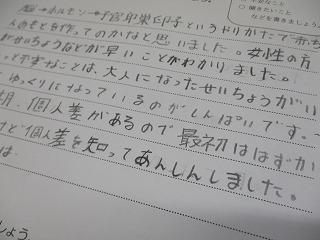 などを書きましょう
脳→ホルモン→子宮卵巣卵子というやりかたで赤ち
のもとを作ってのかなと思いました。女性の方
がせいちょうなどが早いことがわかりました。
ってですなことは、大人になったせいちょうがい
ゆっくりになっているのがしんぱいです。
期、個人差があるので最初ははずか
けど個人差を知ってあんしんしました。
は
しょう。